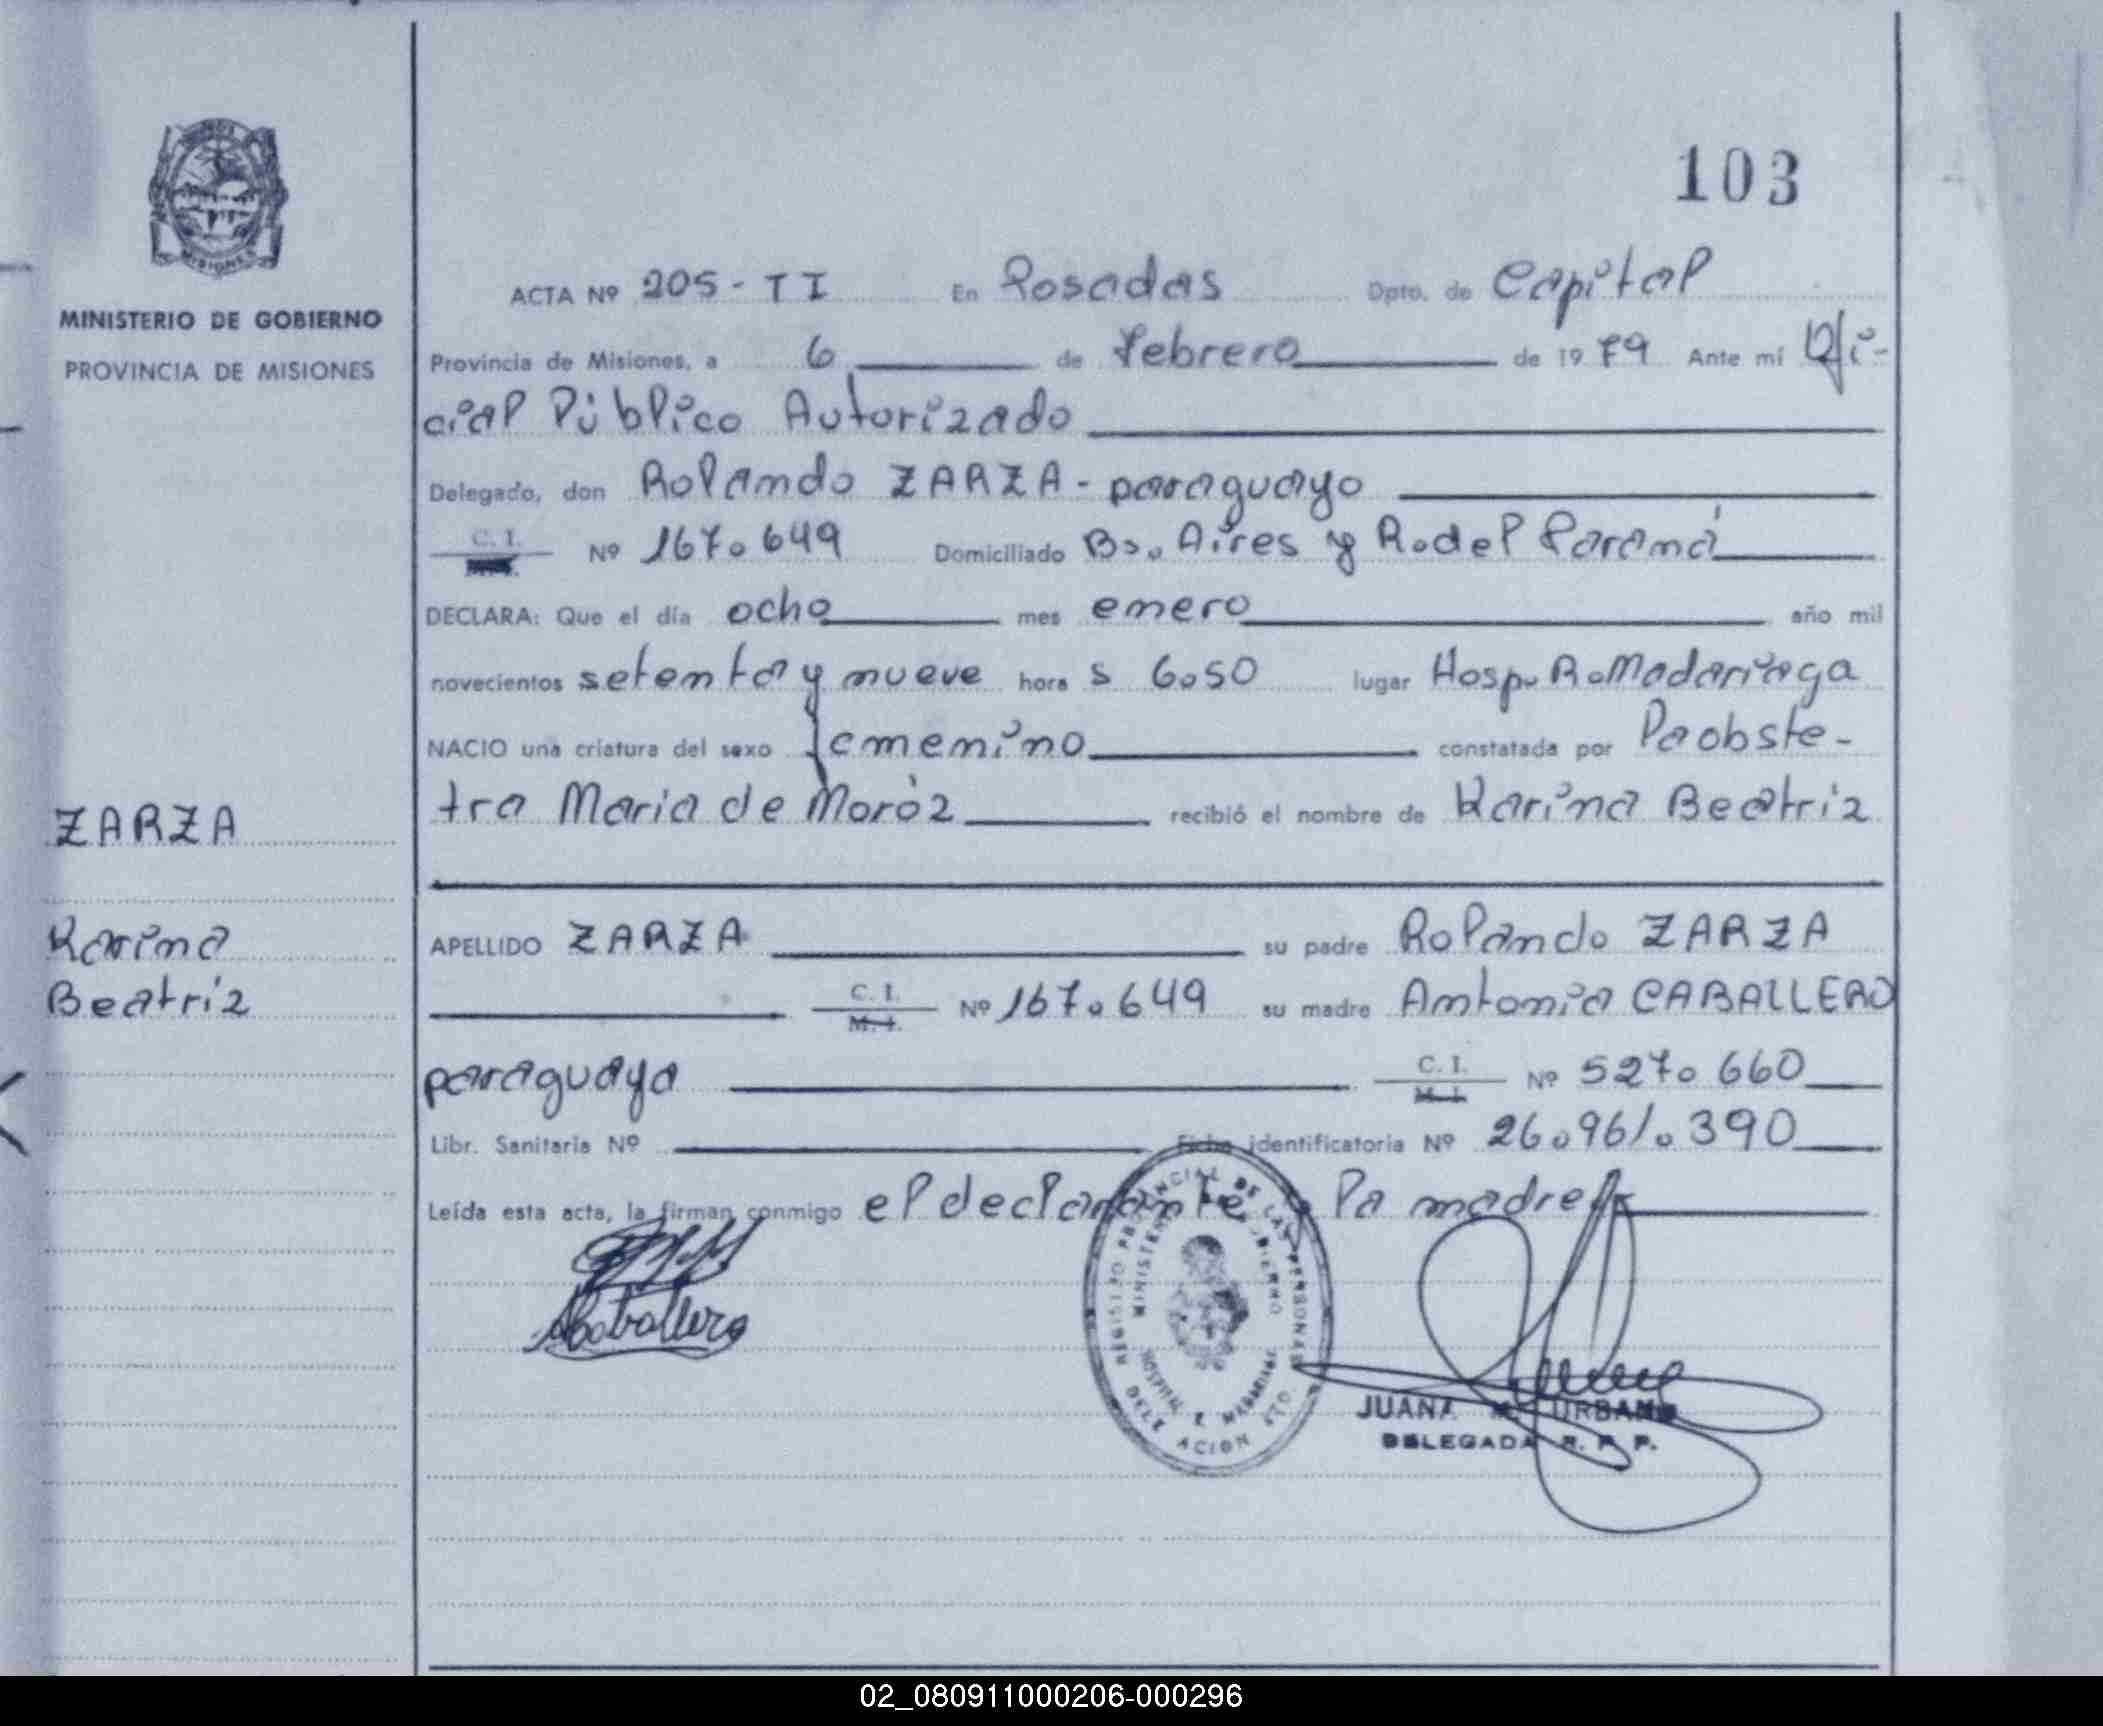 103
MINISTERIO DE GOBIERNO
PROVINCIA DE MISIONES
ACTA Nº 205-TI En Posadas Dpto. de Capital
Provincia de Misiones, a 6 de febrero de 1979 Ante mí Ofi-
cial Público Autorizado
Delegado, don Rolando ZARZA - paraguayo
C. I. Nº 167.649 Domiciliado Bs. Aires y R. del Paraná
DECLARA: Que el día ocho mes enero año mil
novecientos setenta y nueve hora s 6.50 lugar Hosp. R. Madariaga
NACIO una criatura del sexo femenino constatada por P/obste-
tra Maria de Moróz recibió el nombre de Karina Beatriz
ZARZA
Karina
Beatriz
APELLIDO ZARZA su padre Rolando ZARZA
C. I. M. I. Nº 167.649 su madre Antonia CABALLERO
paraguaya C. I. M. I. Nº 527.660
Libr. Sanitaria Nº Ficha identificatoria Nº 26.961.390
Leída esta acta, la firman conmigo el declarante y la madre
ACaballero
REGISTRO PROVINCIAL DE LAS PERSONAS
MINISTERIO DE GOBIERNO
HOSPITAL R. MADARIAGA
JUANA URBANO
DELEGADA R. P. P.
02_080911000206-000296